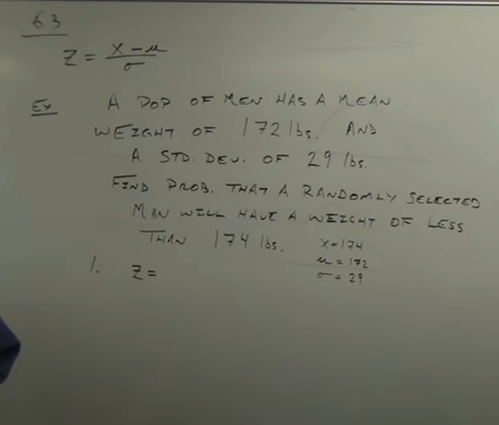 6.3
Z = X - μ / σ
Ex A POP OF MEN HAS A MEAN
WEIGHT OF 172 lbs. AND
A STD. DEV. OF 29 lbs.
FIND PROB. THAT A RANDOMLY SELECTED
MAN WILL HAVE A WEIGHT OF LESS
THAN 174 lbs. X=174
μ = 172
1. Z = σ = 29